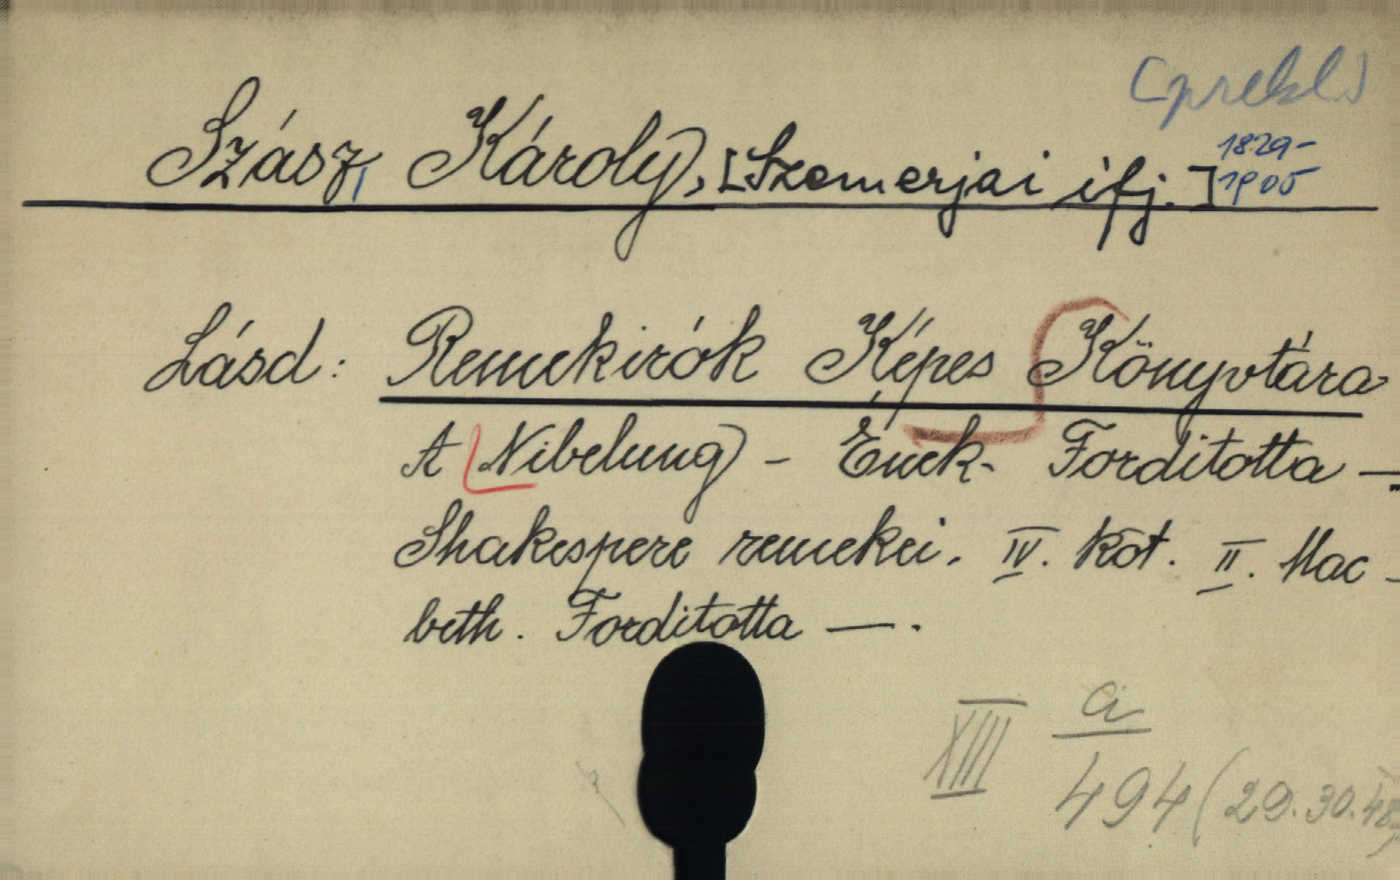 (prekl.)
Szász, Károly, [Szemerjai ifj.] 1829-
1905
Lásd: Remekirók Képes Könyvtára
A Nibelung - Ének. Forditotta —.
Shakespere remekei. IV. köt. II. Mac-
beth. Forditotta —.
XIII ci
494 (29.30.